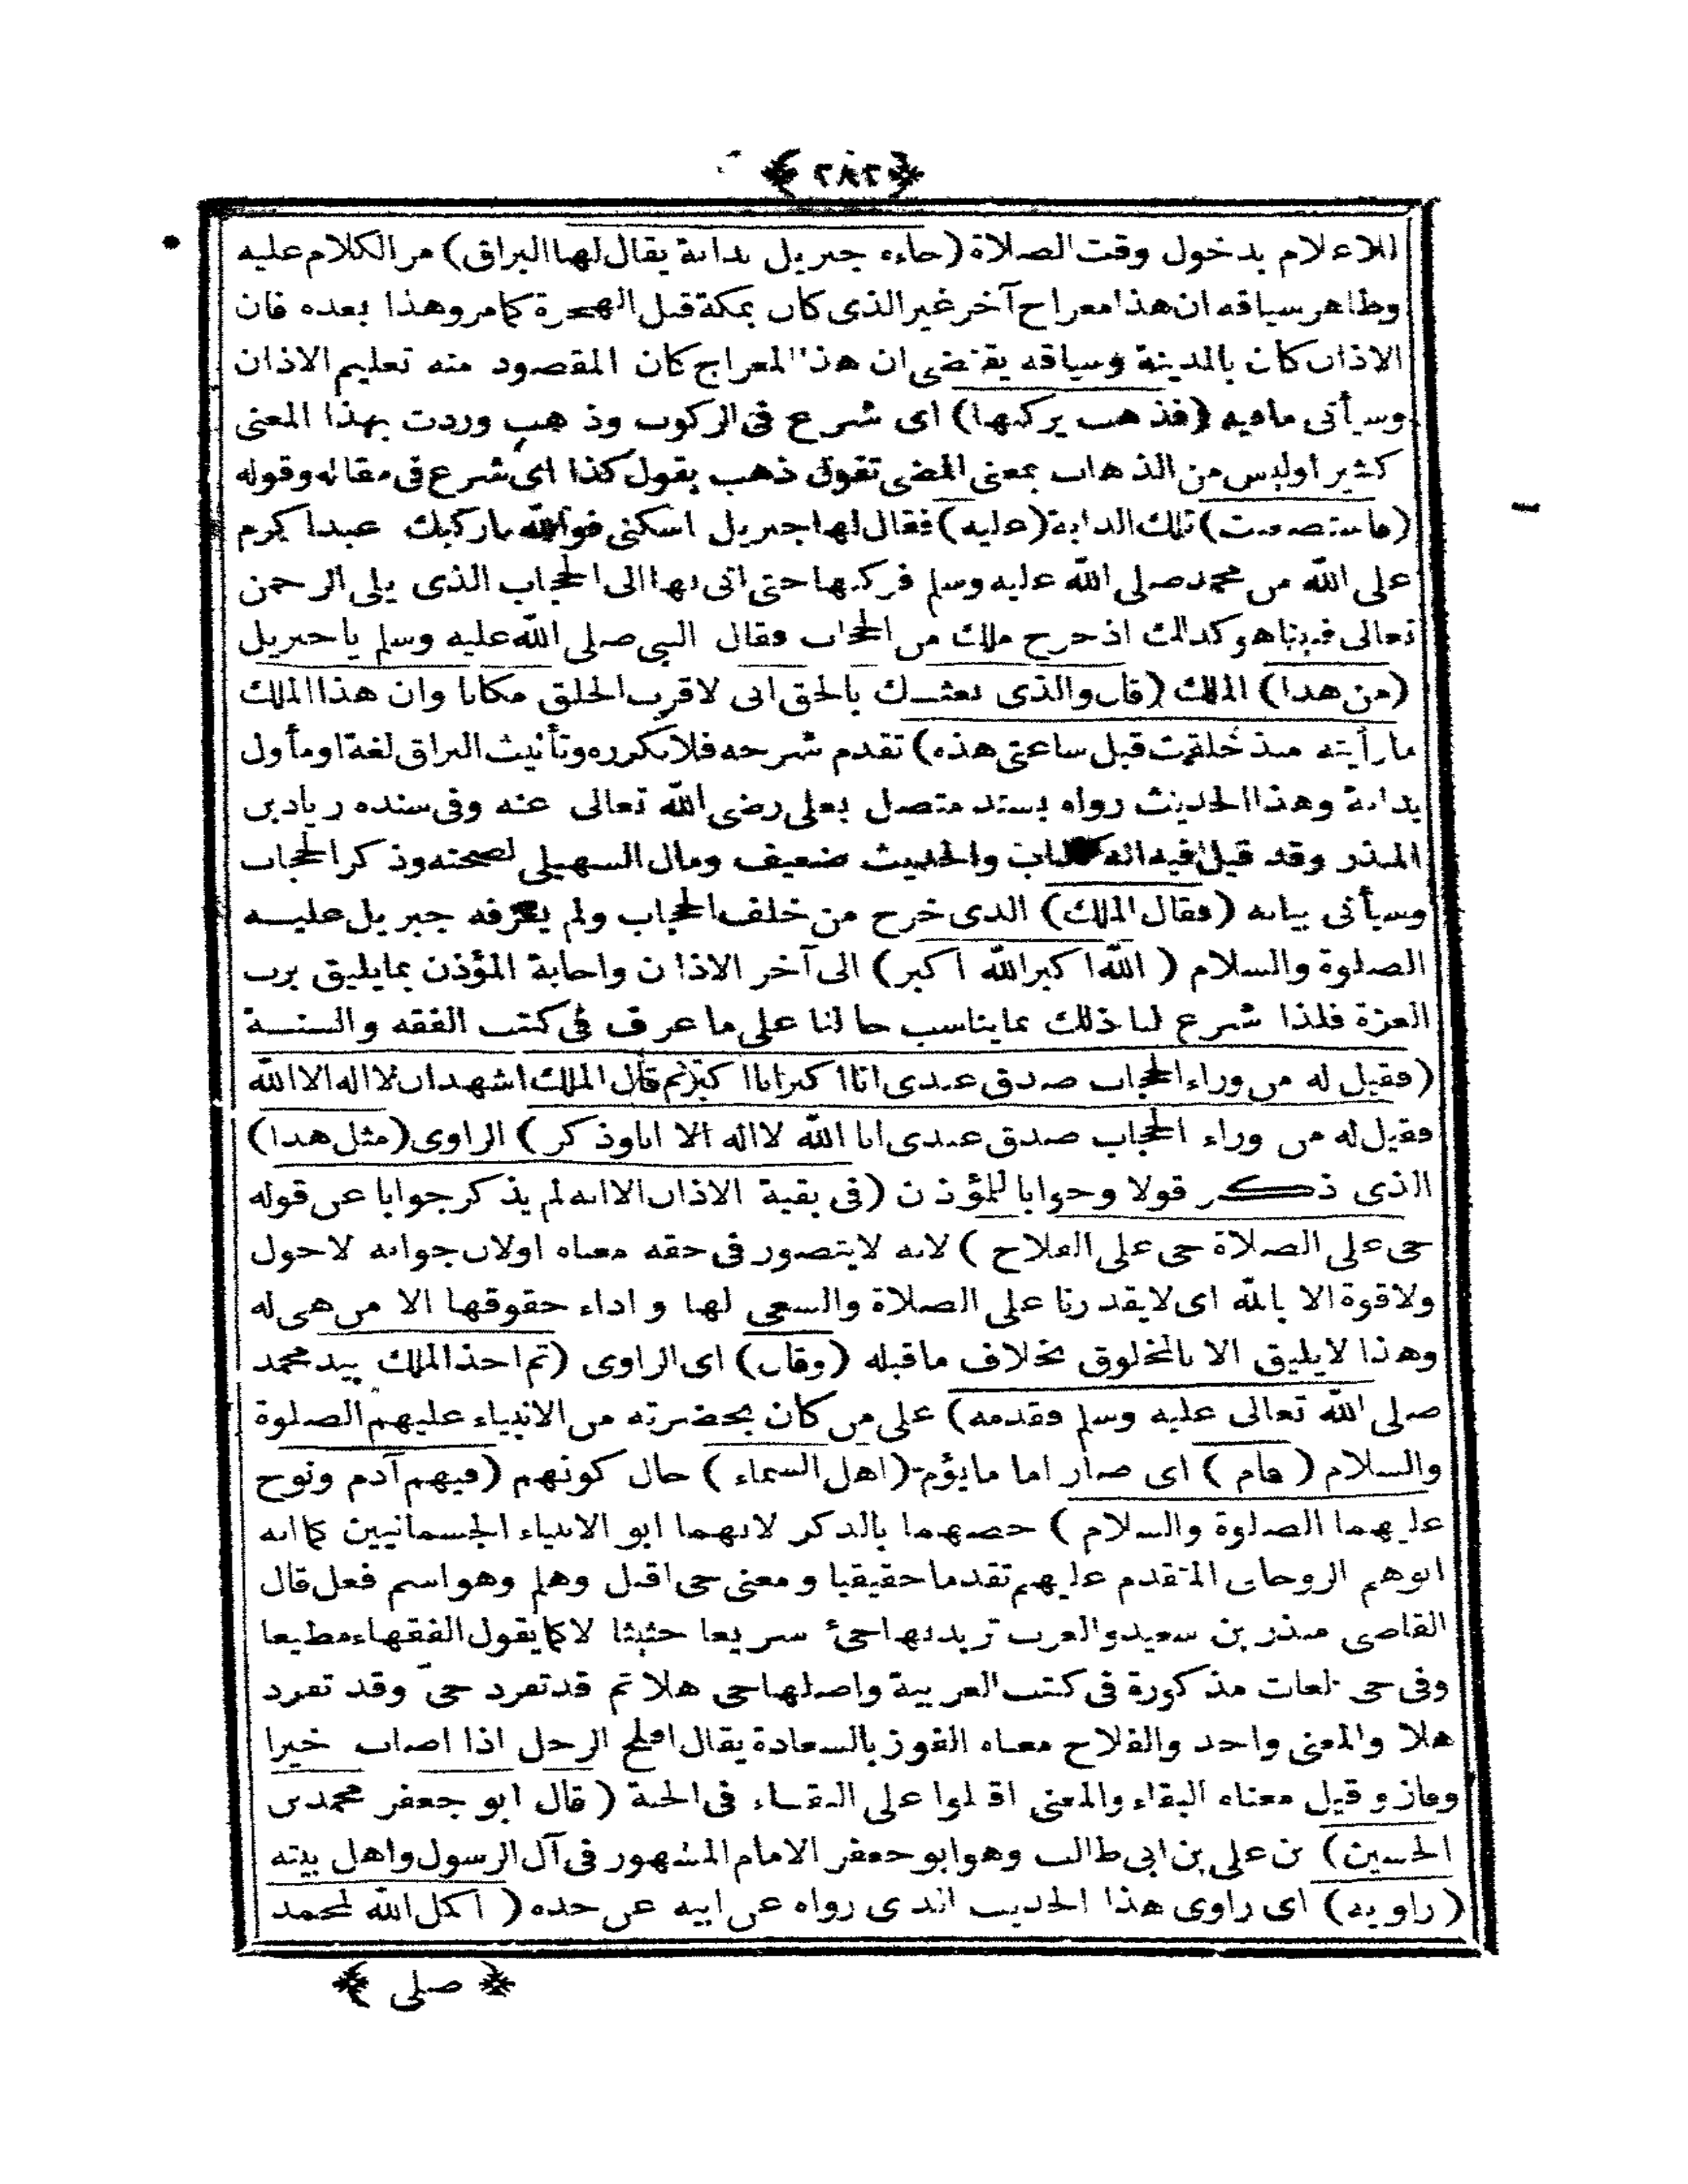 ﴿ ٢٨٢ ﴾
للاعلام بدخول وقت الصلاة (جاءه جبريل بدابة يقال لها البراق) مر الكلام عليه
وظاهر سياقه ان هذا معراج آخر غير الذى كان بمكة قبل الهجرة كما مر وهذا بعده فان
الاذان كان بالمدينة وسياقه يقتضى ان هذا المعراج كان المقصود منه تعليم الاذان
وسيأتى مافيه (فذهب يركبها) اى شرع فى الركوب وذهب وردت بهذا المعنى
كثيرا وليس من الذهاب بمعنى المضى تقول ذهب يقول كذا اى شرع فى مقاله وقوله
(فاستصعبت) تلك الدابة (عليه) فقال لها جبريل اسكنى فوالله ماركبك عبد اكرم
على الله من محمد صلى الله عليه وسلم فركبها حتى اتى بها الى الحجاب الذى يلى الرحمن
تعالى فبينا هو كذلك اذ خرج ملك من الحجاب فقال النبى صلى الله عليه وسلم يا جبريل
(من هذا) الملك (قال والذى بعثك بالحق انى لاقرب الخلق مكانا وان هذا الملك
مارأيته منذ خلقت قبل ساعتى هذه) تقدم شرحه فلا نكرره وتأنيث البراق لغة او مأول
بدابة وهذا الحديث رواه بسند متصل بعلى رضى الله تعالى عنه وفى سنده زياد بن
المنذر وقد قيل فيه انه كذاب والحديث ضعيف ومال السهيلى لصحته وذكر الحجاب
وسيأتى بيانه (فقال الملك) الذى خرج من خلف الحجاب ولم يعرفه جبريل عليه
الصلوة والسلام (الله اكبر الله اكبر) الى آخر الاذان واجابة المؤذن بما يليق برب
العزة فلذا شرع لنا ذلك بما يناسب حالنا على ما عرف فى كتب الفقه والسنة
(فقيل له من وراء الحجاب صدق عبدى انا اكبر انا اكبر ثم قال الملك اشهد ان لا اله الا الله
فقيل له من وراء الحجاب صدق عبدى انا الله لا اله الا انا وذكر) الراوى (مثل هذا)
الذى ذكر قولا وجوابا للمؤذن (فى بقية الاذان الا انه لم يذكر جوابا عن قوله
حى على الصلاة حى على الفلاح) لانه لا يتصور فى حقه معناه اولان جوابه لا حول
ولا قوة الا بالله اى لا يقدرنا على الصلاة والسعى لها واداء حقوقها الا من هى له
وهذا لا يليق الا بالمخلوق بخلاف ما قبله (وقال) اى الراوى (ثم اخذ الملك بيد محمد
صلى الله تعالى عليه وسلم فقدمه) على من كان بحضرته من الانبياء عليهم الصلوة
والسلام (فام) اى صار اماما يؤم (اهل السماء) حال كونهم (فيهم آدم ونوح
عليهما الصلوة والسلام) خصهما بالذكر لانهما ابو الانبياء الجسمانيين كما انه
ابوهم الروحانى المتقدم عليهم تقدما حقيقيا ومعنى حى اقبل وهلم وهو اسم فعل قال
القاضى منذر بن سعيد والعرب تريد بها جئ سريعا حثيثا لا كما يقول الفقهاء مطيعا
وفى حى لغات مذكورة فى كتب العربية واصلها حى هلا ثم قد تفرد حىّ وقد تفرد
هلا والمعنى واحد والفلاح معناه الفوز بالسعادة يقال افلح الرجل اذا اصاب خيرا
وفاز وقيل معناه البقاء والمعنى اقبلوا على البقاء فى الجنة (قال ابو جعفر محمد بن
الحسين) بن على بن ابى طالب وهو ابو جعفر الامام المشهور فى آل الرسول واهل بيته
(راويه) اى راوى هذا الحديث الذى رواه عن ابيه عن جده (اكمل الله لمحمد
﴿ صلى ﴾